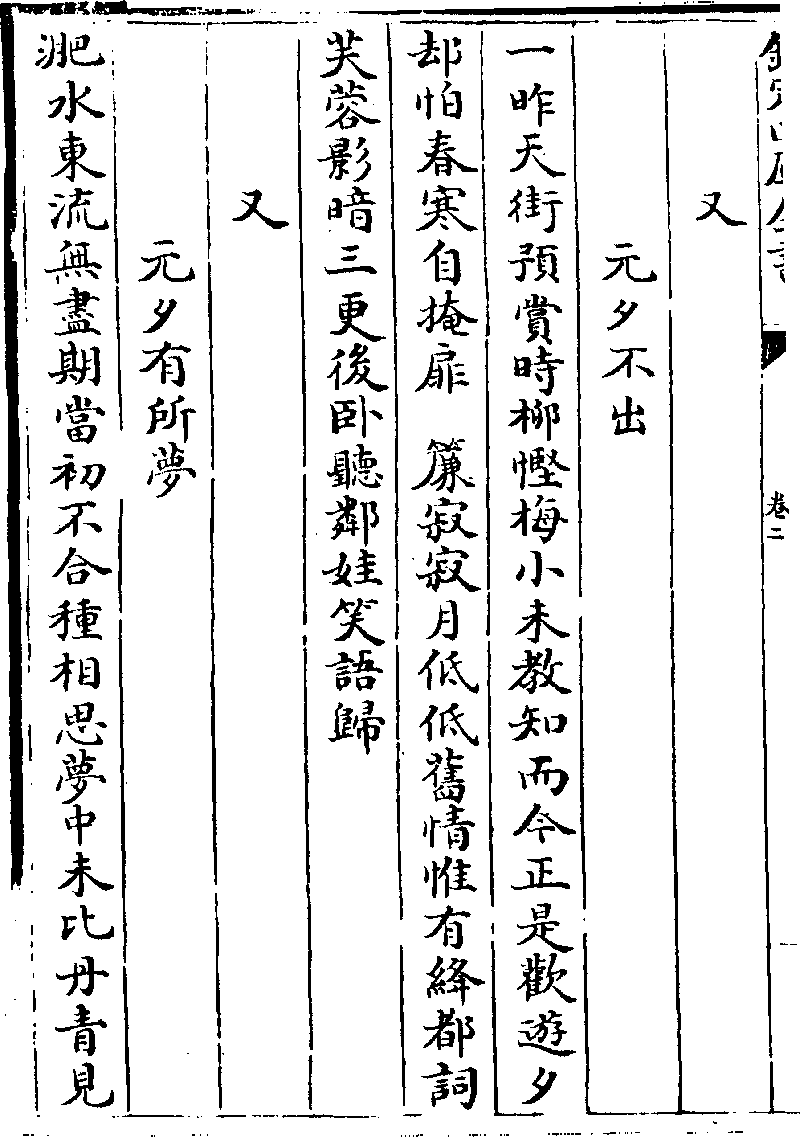 欽定四庫全書
卷二
又
元夕不出
一昨天街預賞時柳慳梅小未教知而今正是歡遊夕
却怕春寒自掩扉　簾寂寂月低低舊情惟有絳都詞
芙蓉影暗三更後卧聽鄰娃笑語歸
又
元夕有所夢
淝水東流無盡期當初不合種相思夢中未比丹青見